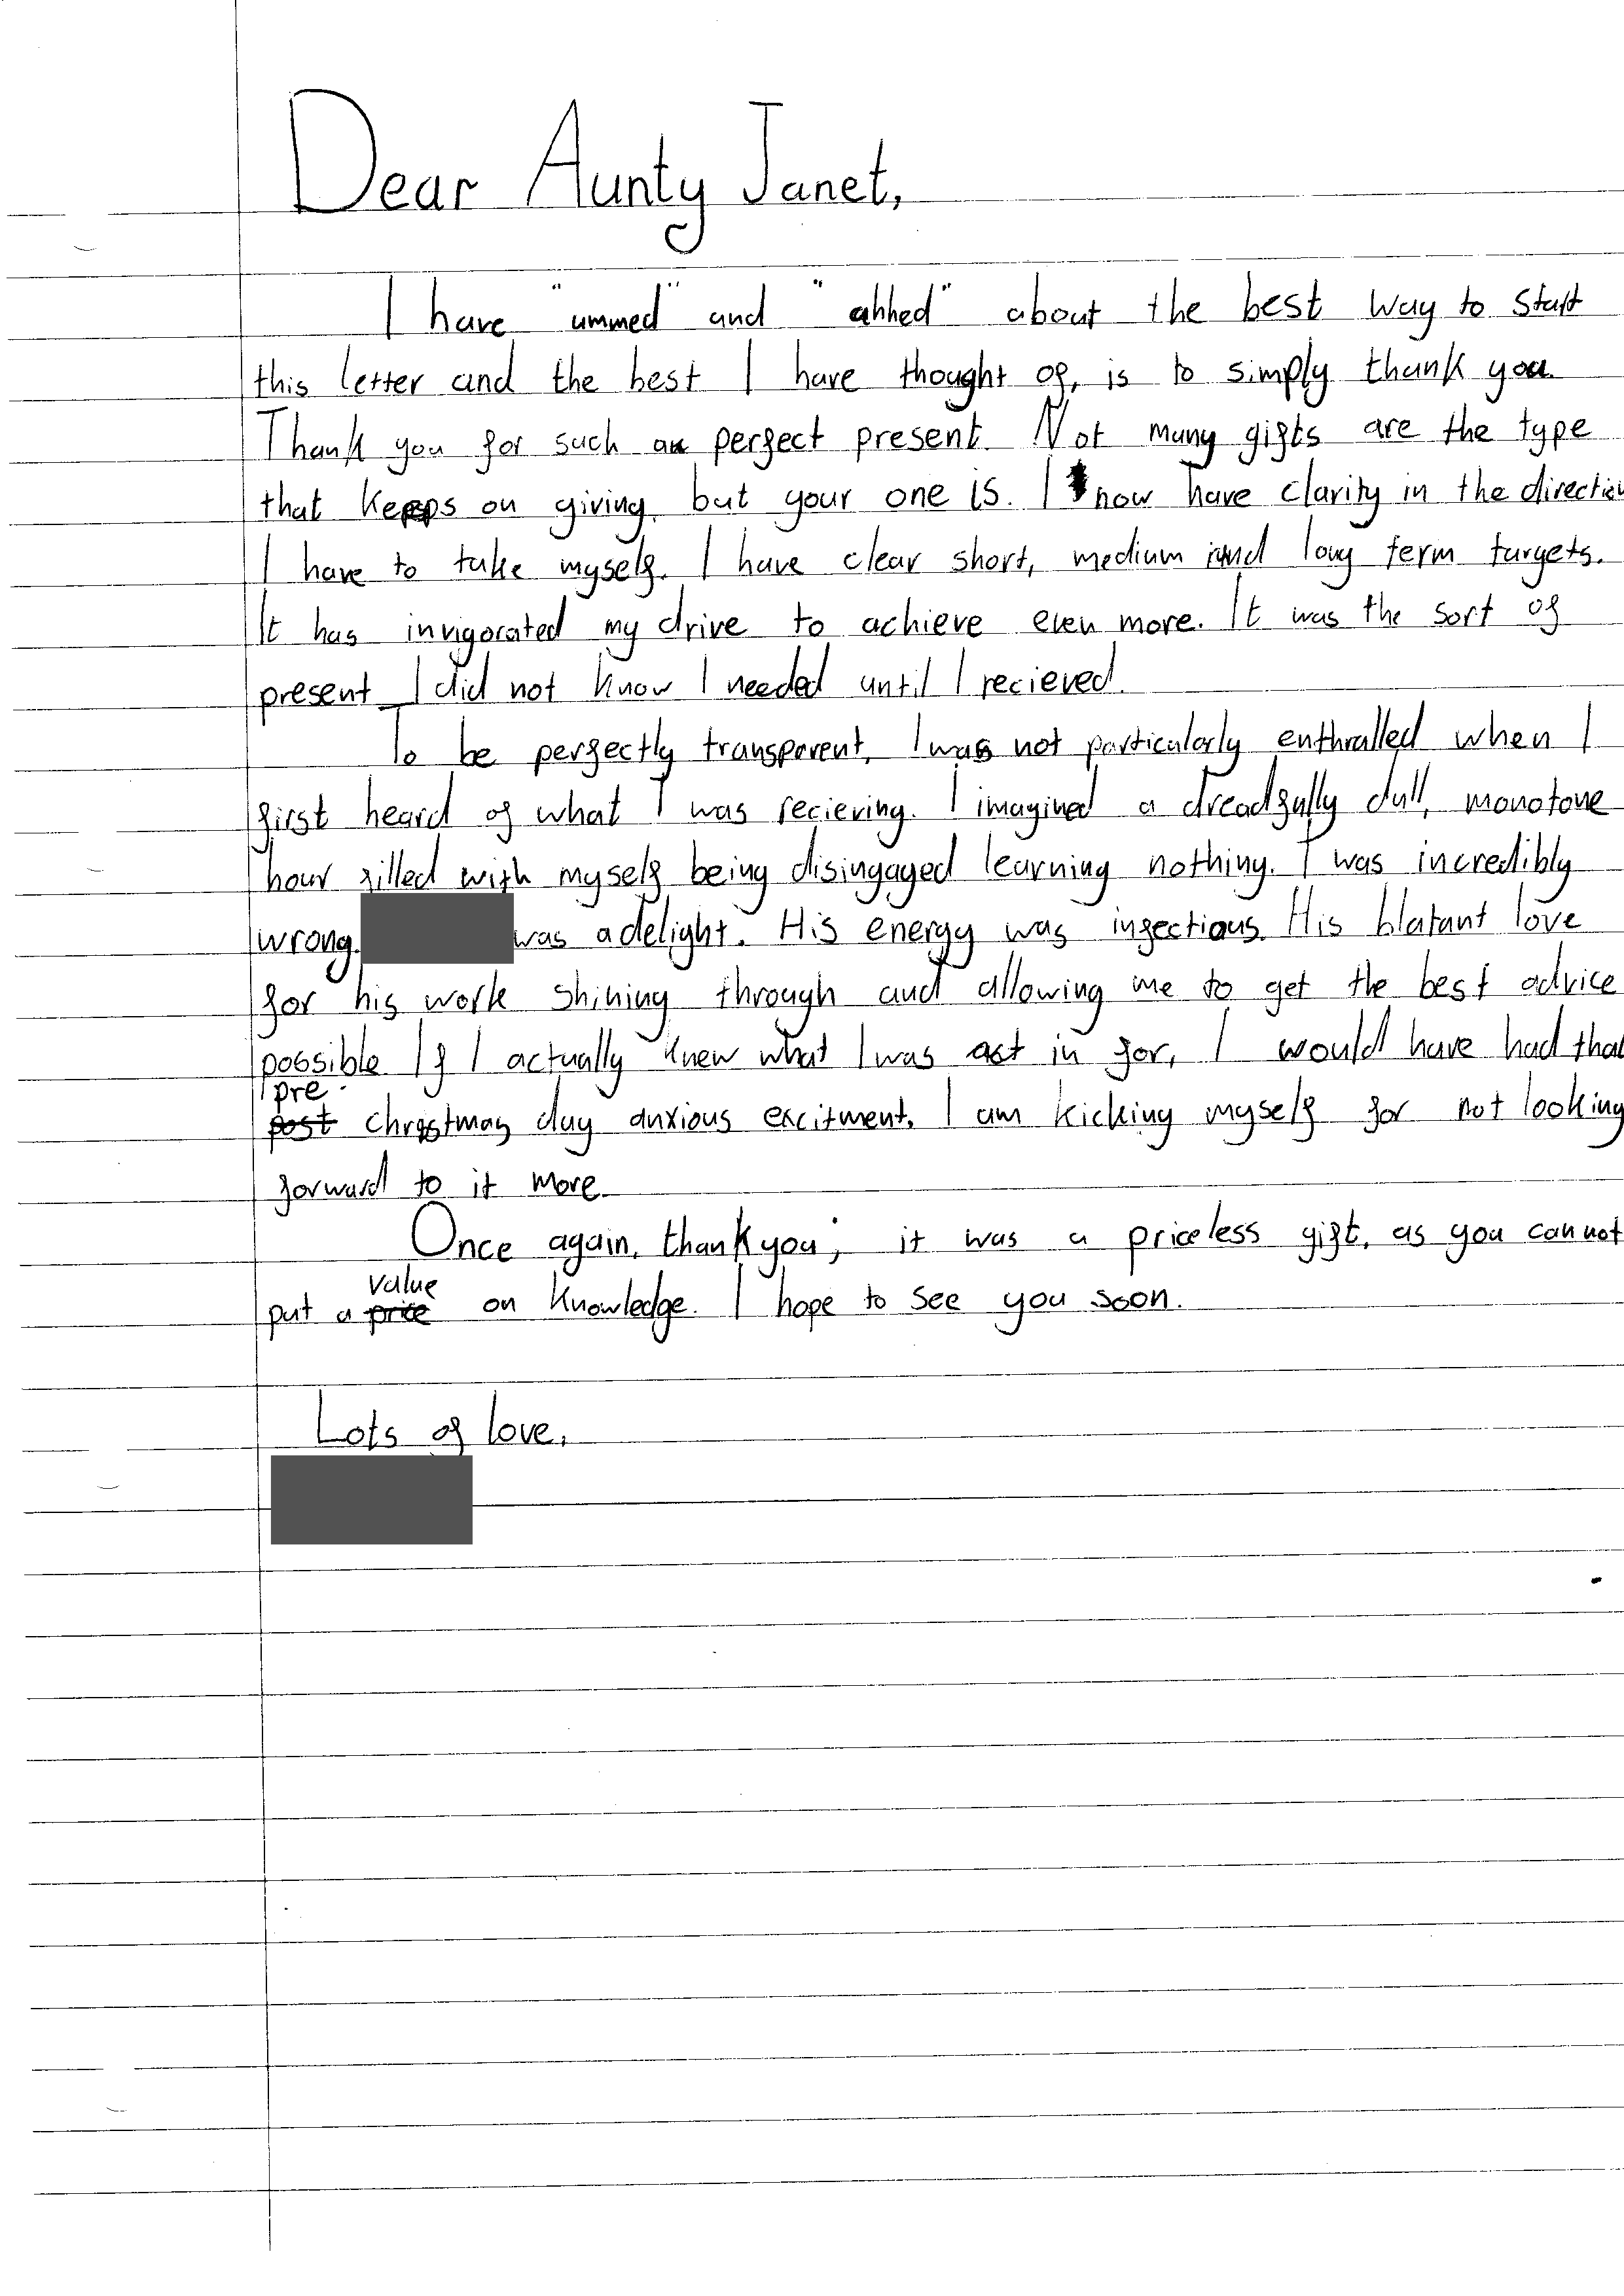 Dear Aunty Janet,
I have "ummed" and "ahhed" about the best way to start
this letter and the best I have thought of, is to simply thank you.
Thank you for such a perfect present. Not many gifts are the type
that keeps on giving, but your one is. I now have clarity in the direction
I have to take myself. I have clear short, medium and long term targets.
It has invigorated my drive to achieve even more. It was the sort of
present I did not know I needed until I recieved.
To be perfectly transparent, I was not particularly enthralled when I
first heard of what I was recieving. I imagined a dreadfully dull, monotone
hour filled with myself being disingaged learning nothing. I was incredibly
wrong. was a delight. His energy was infectious. His blatant love
for his work shining through and allowing me to get the best advice
possible If I actually knew what I was in for, I would have had that
pre
post christmas day anxious excitment. I am kicking myself for not looking
forward to it more.
Once again, thank you; it was a priceless gift, as you cannot
value
put a price on knowledge. I hope to see you soon.
Lots of love,